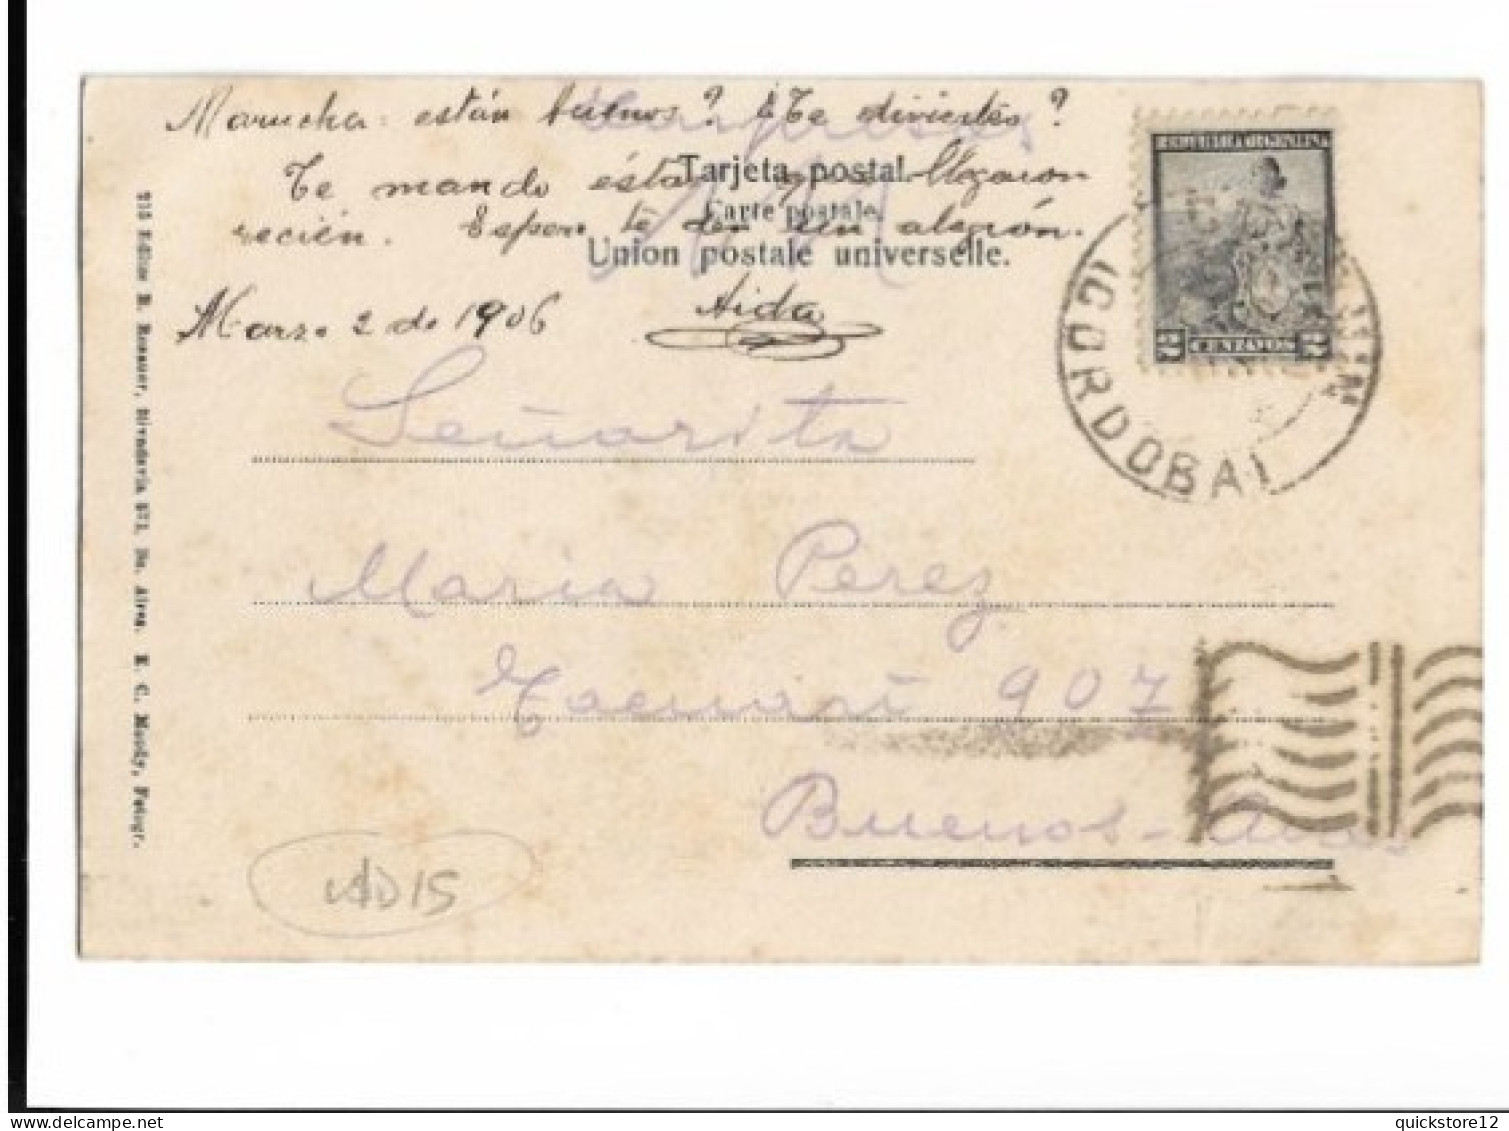 Marucha: están buenos? ¿Te diviertes?
Tarjeta postal.
Te mando ésta que llegaron
Carte postale.
recién. Espero te den un alegrón.
Union postale universelle.
Marzo 2 de 1906 Aida
REPUBLICA ARGENTINA
2 CENTAVOS 2
(CORDOBA)
Señorita
Maria Perez
Tacuarí 907
Buenos-Aires
215 Editor R. Rosauer, Rivadavia 571, Bs. Aires. E. C. Moody, Fotogr.
AD15
delcampe.net
quickstore12